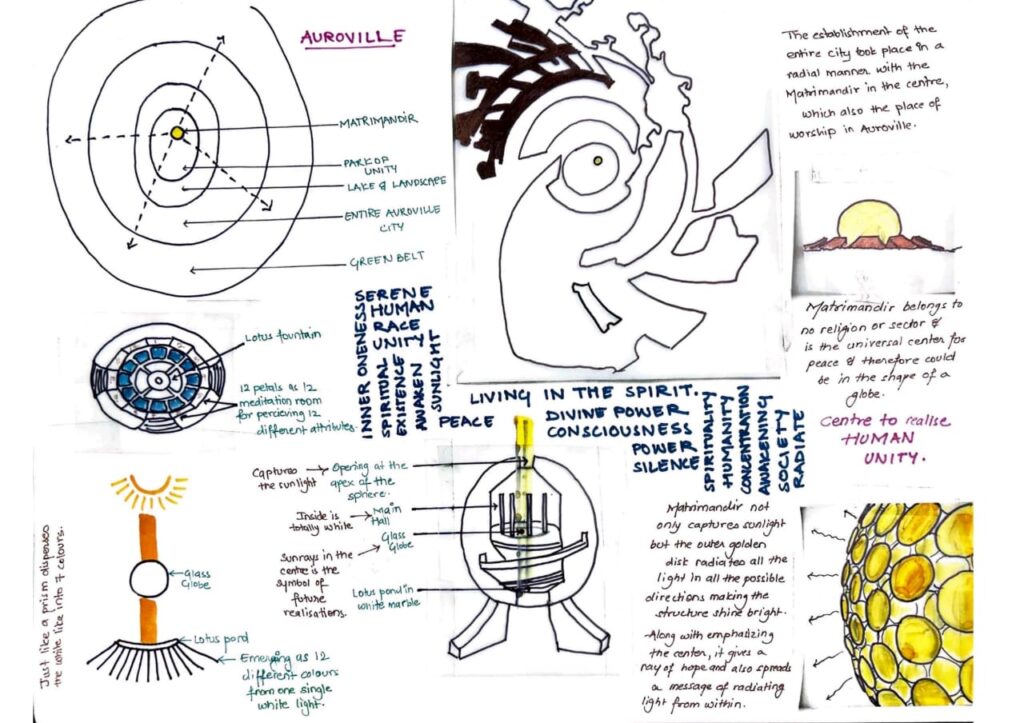 AUROVILLE
MATRIMANDIR
PARK OF
UNITY
LAKE & LANDSCAPE
ENTIRE AUROVILLE
CITY
GREEN BELT
The establishment of the
entire city took place in a
radial manner with the
Matrimandir in the centre,
which also the place of
worship in Auroville.
Matrimandir belongs to
no religion or sector &
is the universal center for
peace & therefore could
be in the shape of a
globe.
Centre to realise
HUMAN
UNITY.
Lotus fountain
12 petals as 12
meditation room
for percieving 12
different attributes.
INNER ONENESS
SPIRITUAL UNITY
EXISTENCE
AWAKEN
SUNLIGHT
SERENE
HUMAN
RACE
PEACE
LIVING IN THE SPIRIT.
DIVINE POWER
CONSCIOUSNESS
POWER
SILENCE
SPIRITUALITY
HUMANITY
CONCENTRATION
AWAKENING
SOCIETY
RADIATE
Captures
the sunlight
Opening at the
apex of the
sphere.
Inside is
totally white
Main
Hall
Glass
Globe
Sunrays in the
centre is the
symbol of
future
realisations.
Lotus pond in
white marble
Just like a prism disperses
the white like into 7 colours.
Glass
Globe
Lotus pond
Emerging as 12
different colours
from one single
white light.
Matrimandir not
only captures sunlight
but the outer golden
disk radiates all the
light in all the possible
directions making the
structure shine bright.
-Along with emphatizing
the center, it gives a
ray of hope and also spreads
a message of radiating
light from within.